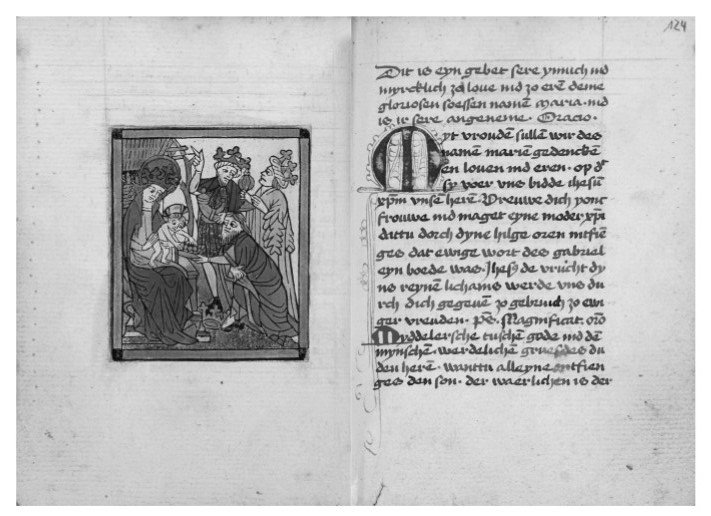 124
Dit is eyn gebet sere ynnich nd
myrcklich zo loue nd zo erē deme
gloriosen soessen namē maria · nd
is ir sere angeneme · Oracio ·
Myt vroudē sullē wir des
namē mariē gedenckē
en louen nd eren · op dz
sy voer vns bidde ihesū
xp̄m vnsē herē · Vreuwe dich yonc
frouwe nd maget eyne moder xp̄i
dattu dorch dyne hilge oren intfiē
ges dat ewige wort des gabriel
eyn boede was · Jhesꝰ de vrucht dy
ns reynē lichams werde vns du
rch dich gegeuē zo gebruch zo ewi
ger vreuden · p̄s · Magnificat · orō
Myddelersche tuschen gode nd dē
mynschē · werdelichē gruesdes du
den herē · wanttu alleyne ontfien
ges den son · der waerlichen is der